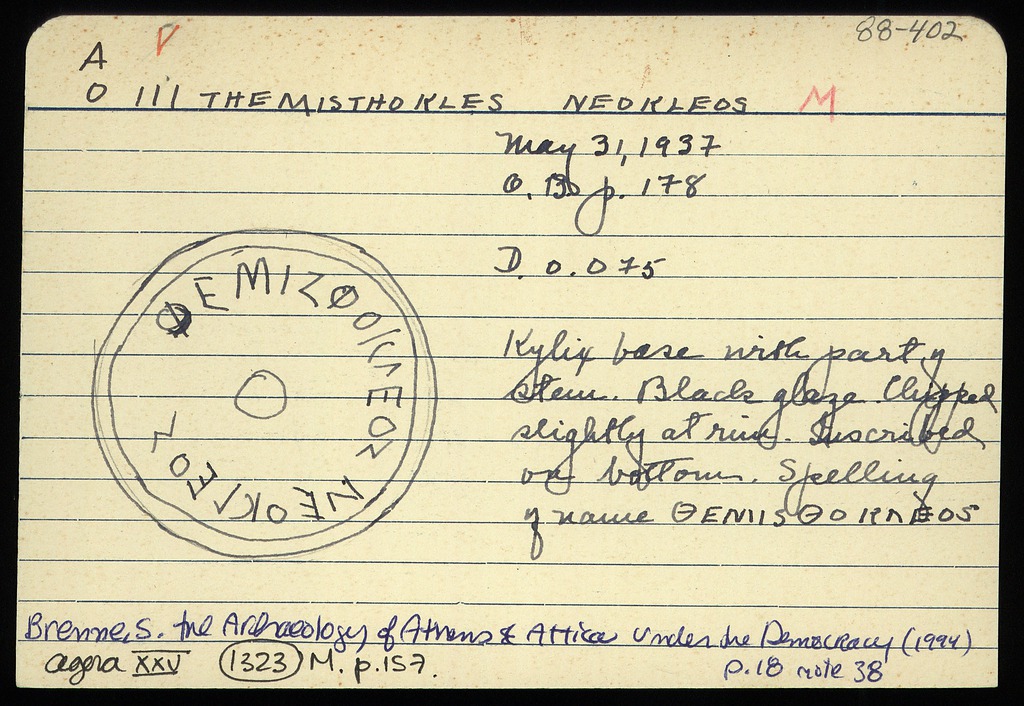 88-402
A V
O III THEMISTHOKLES NEOKLEOS M
May 31, 1937
O.B. p. 178
D. 0.075
ΘEMIΣΘOKΛEOΣ NEOKΛEOΣ
Kylix base with part of
stem. Black glaze. Chipped
slightly at rim. Inscribed
on bottom. Spelling
of name ΘEMISΘOKΛEOS
Brenne, S. the Archaeology of Athens & Attica under the Democracy (1994)
p.18 note 38
agora XXV 1323 M. p.157.